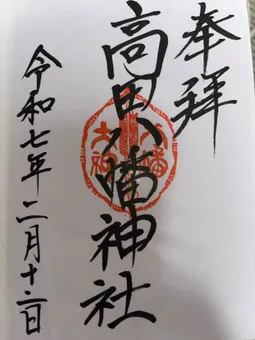 奉拝
高田八幡神社
令和七年二月十二日